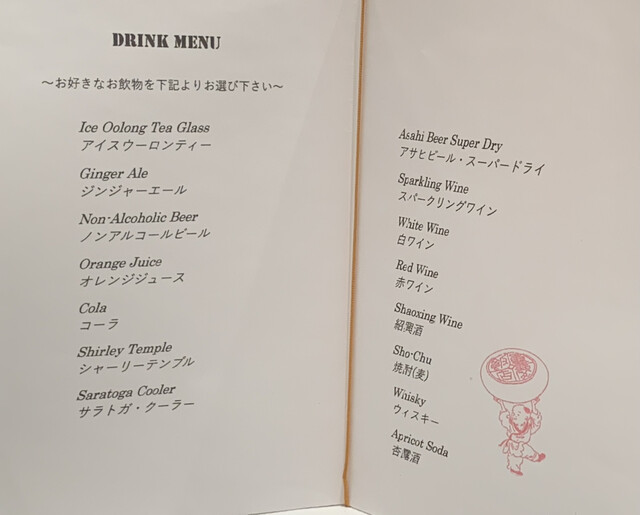 DRINK MENU
～お好きなお飲物を下記よりお選び下さい～
Ice Oolong Tea Glass
アイスウーロンティー
Ginger Ale
ジンジャーエール
Non-Alcoholic Beer
ノンアルコールビール
Orange Juice
オレンジジュース
Cola
コーラ
Shirley Temple
シャーリーテンプル
Saratoga Cooler
サラトガ・クーラー
Asahi Beer Super Dry
アサヒビール・スーパードライ
Sparkling Wine
スパークリングワイン
White Wine
白ワイン
Red Wine
赤ワイン
Shaoxing Wine
紹興酒
Sho-Chu
焼酎(麦)
Whisky
ウィスキー
Apricot Soda
杏露酒